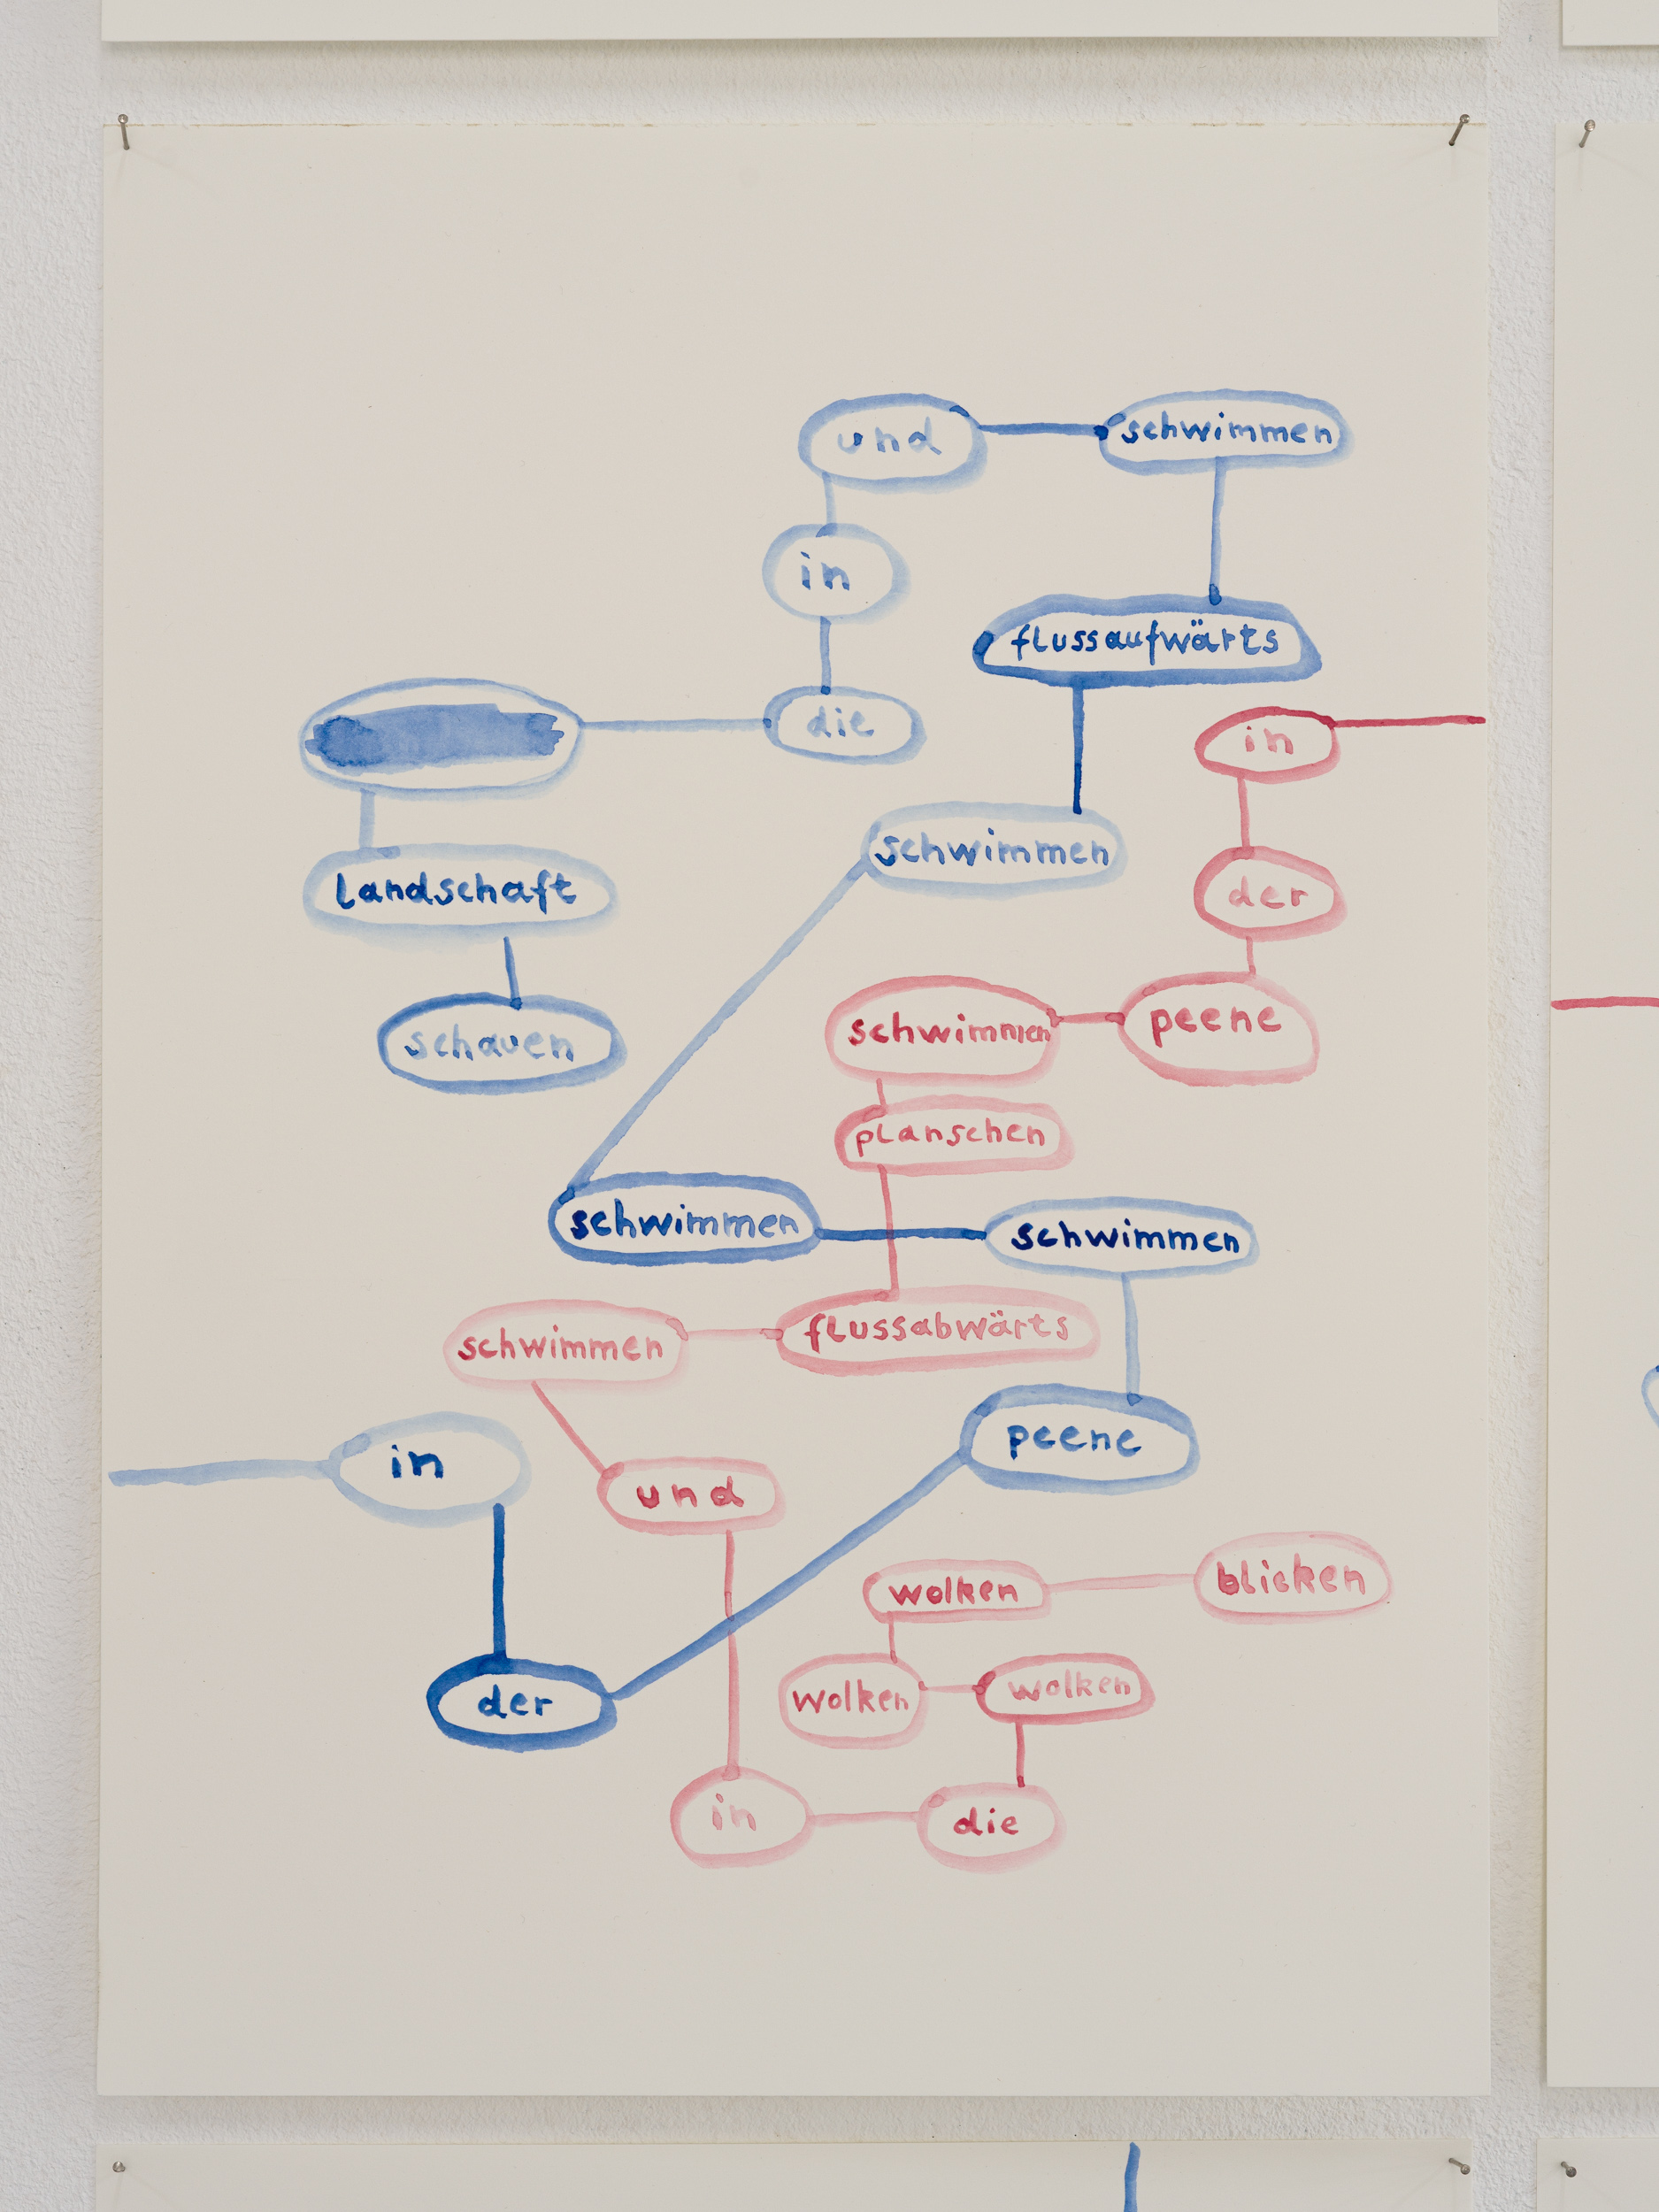 und
schwimmen
in
flussaufwärts
die
in
schwimmen
landschaft
der
schauen
peene
schwimmen
planschen
schwimmen
schwimmen
flussabwärts
schwimmen
peene
in
und
blicken
wolken
wolken
wolken
der
in
die